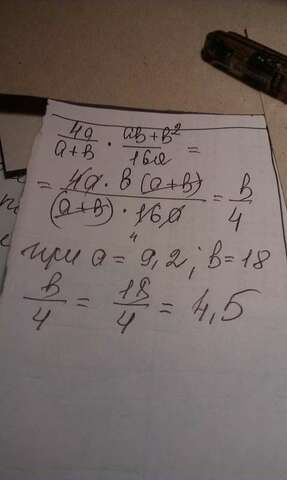 4a/(a+b) · (ab+b²)/(16a) =
= (4a · b (a+b))/((a+b) · 16a) = b/4
4
при a = 9,2; b = 18
b/4 = 18/4 = 4,5